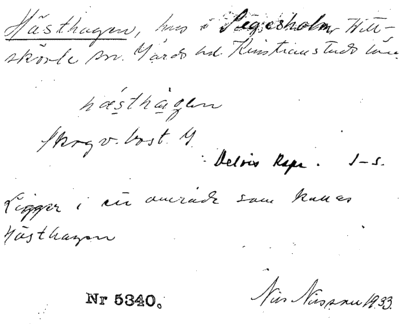 Hästhagen, hus i Segesholm Vitt-
skövle sn. Gärds hd Kristianstads län
hästhagen
Skogv. bost.
Delvis Rapr. J-S.
Ligger i ett område som kallas
Hästhagen
Nr 5340.
Nils Nilsson 1933.